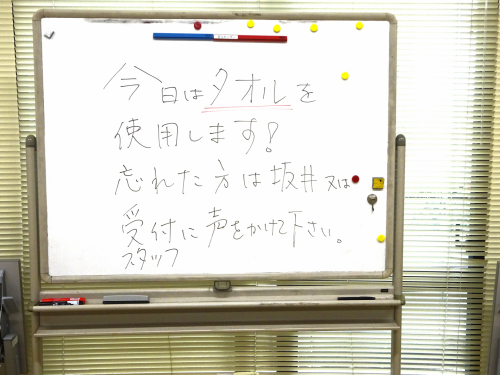 今日はタオルを
使用します!
忘れた方は坂井又は
受付に声をかけて下さい。
スタッフ